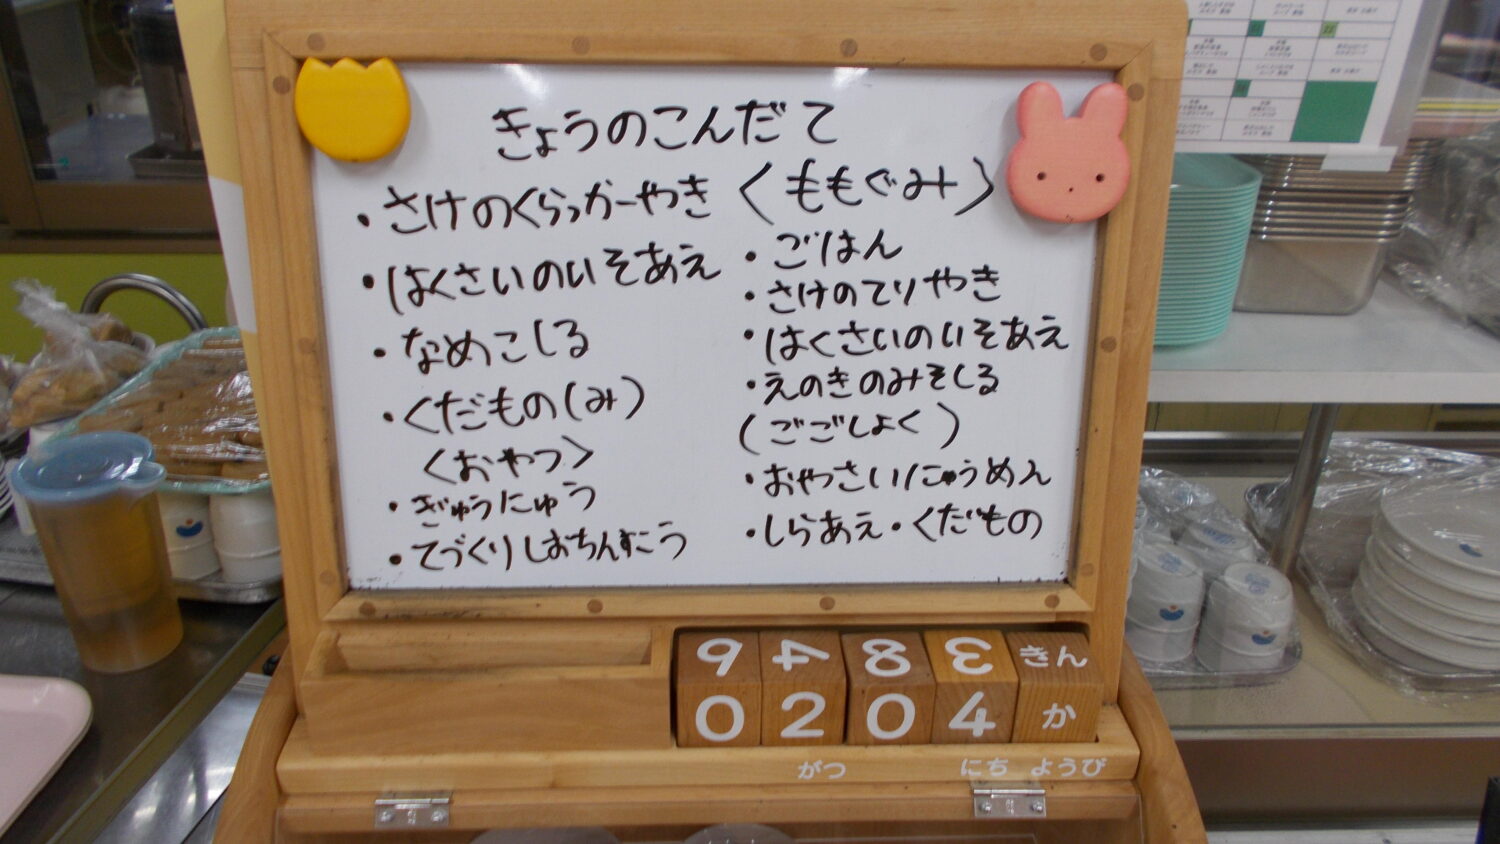 きょうのこんだて
・さけのくらっかーやき
・はくさいのいそあえ
・なめこじる
・くだもの(み)
〈おやつ〉
・ぎゅうにゅう
・てづくりしおちんすこう
〈ももぐみ〉
・ごはん
・さけのてりやき
・はくさいのいそあえ
・えのきのみそしる
(ごごしょく)
・おやさいにゅうめん
・しらあえ・くだもの
6 4 8 3 きん
0 2 0 4 か
がつ にち ようび